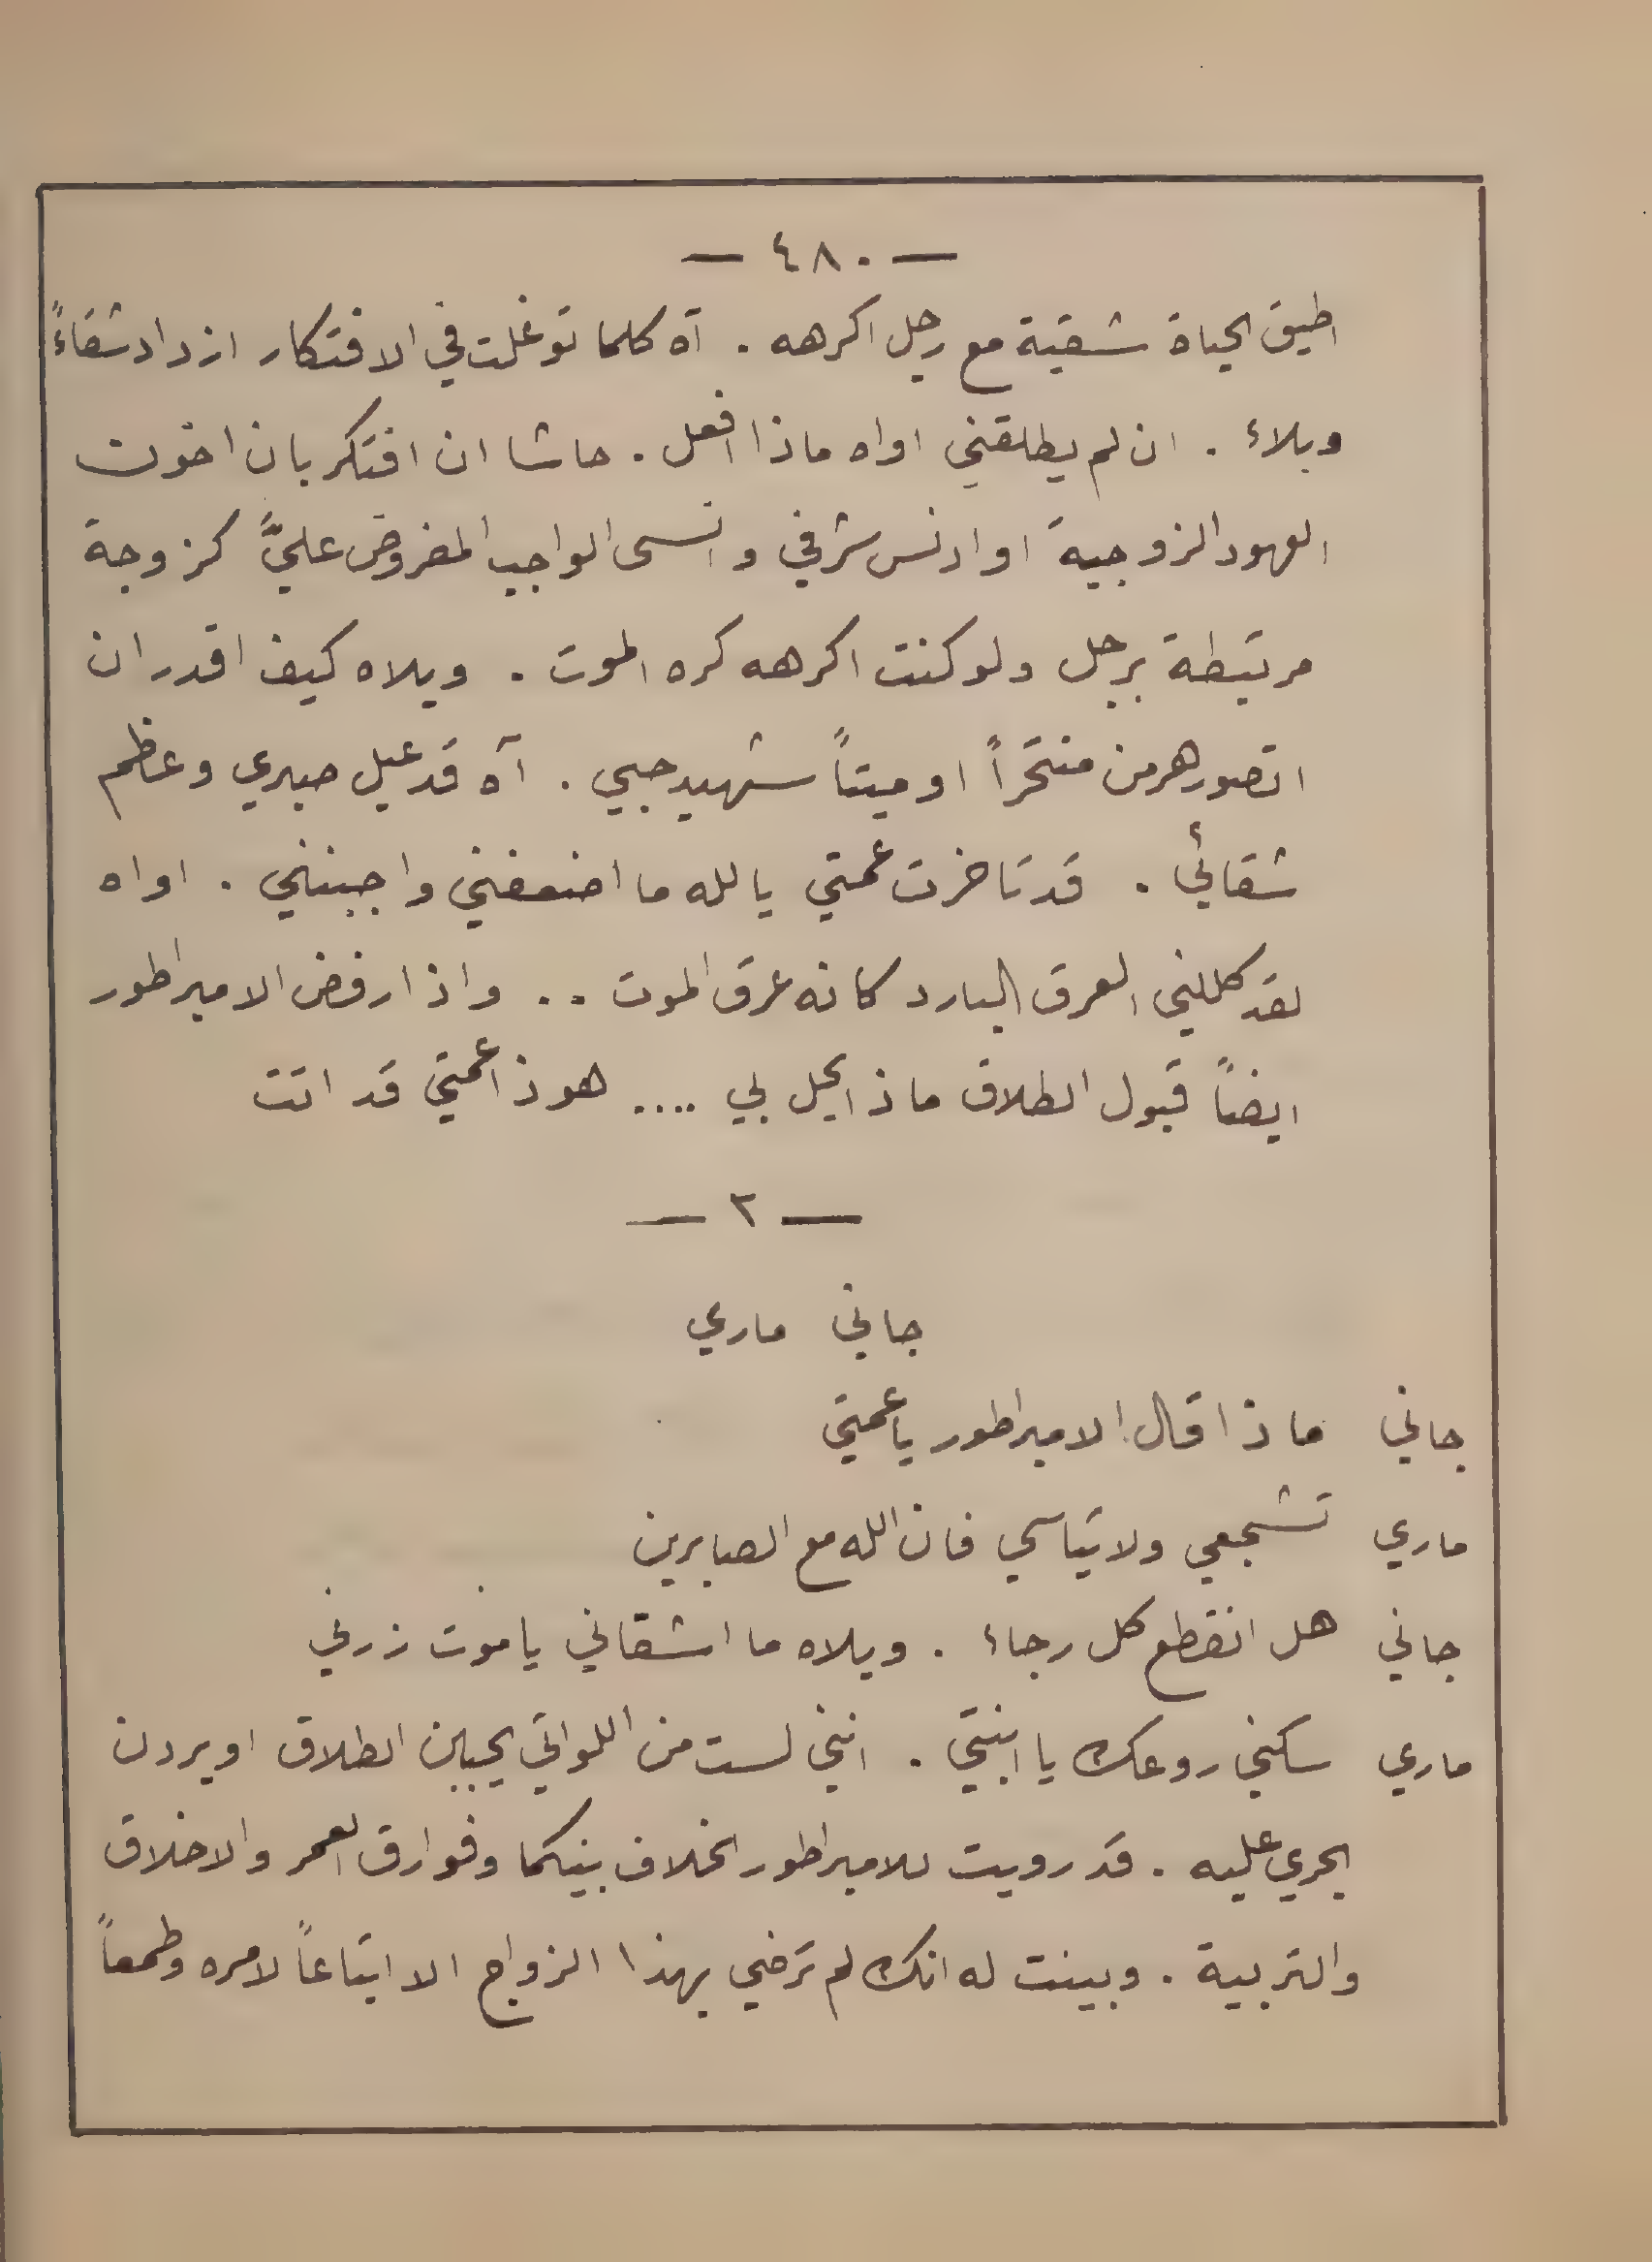 — ٤٨٠ —
اطيق الحياة شقية مع رجل اكرهه . آه كلما توغلت في الافتكار ازداد شقاءً
وبلاء . ان لم يطلقني اواه ماذا افعل . حاشا ان افتكر بان اخون
العهود الزوجية او ادنس شرفي وانسى الواجب المفروض عليَّ كزوجة
مرتبطة برجل ولو كنت اكرهه كره الموت . ويلاه كيف اقدر ان
اتصور هرمن منتحراً او ميتاً شهيد حبي . آه قد عيل صبري وعظم
شقائي . قد تأخرت عمتي يالله ما اضعفني واجبنني . اواه
لقد كللني العرق البارد كانه عرق الموت .. واذا رفض الامبراطور
ايضاً قبول الطلاق ماذا يحل بي .... هوذا عمتي قد اتت
— ٢ —
جاني ماري
جاني ماذا قال الامبراطور يا عمتي
ماري تشجعي ولا تيأسي فان الله مع الصابرين
جاني هل انقطع كل رجاء . ويلاه ما اشقاني يا موت زرني
ماري سكني روعك يا ابنتي . انني لست من اللواتي يحببن الطلاق او يردن
يجري عليه . قد رويت للامبراطور الخلاف بينكما وفوارق العمر والاخلاق
والتربية . وبينت له انك لم ترضي بهذا الزواج الا اتباعاً لامره وطمعاً